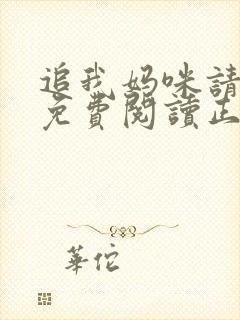 追我媽咪請
免費閱讀正
華佗